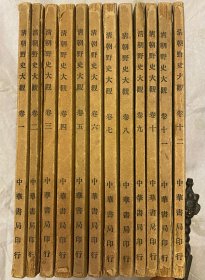 清朝野史大觀 卷一 中華書局印行
清朝野史大觀 卷二 中華書局印行
清朝野史大觀 卷三 中華書局印行
清朝野史大觀 卷四 中華書局印行
清朝野史大觀 卷五 中華書局印行
清朝野史大觀 卷六 中華書局印行
清朝野史大觀 卷七 中華書局印行
清朝野史大觀 卷八 中華書局印行
清朝野史大觀 卷九 中華書局印行
清朝野史大觀 卷十 中華書局印行
清朝野史大觀 卷十一 中華書局印行
清朝野史大觀 卷十二 中華書局印行